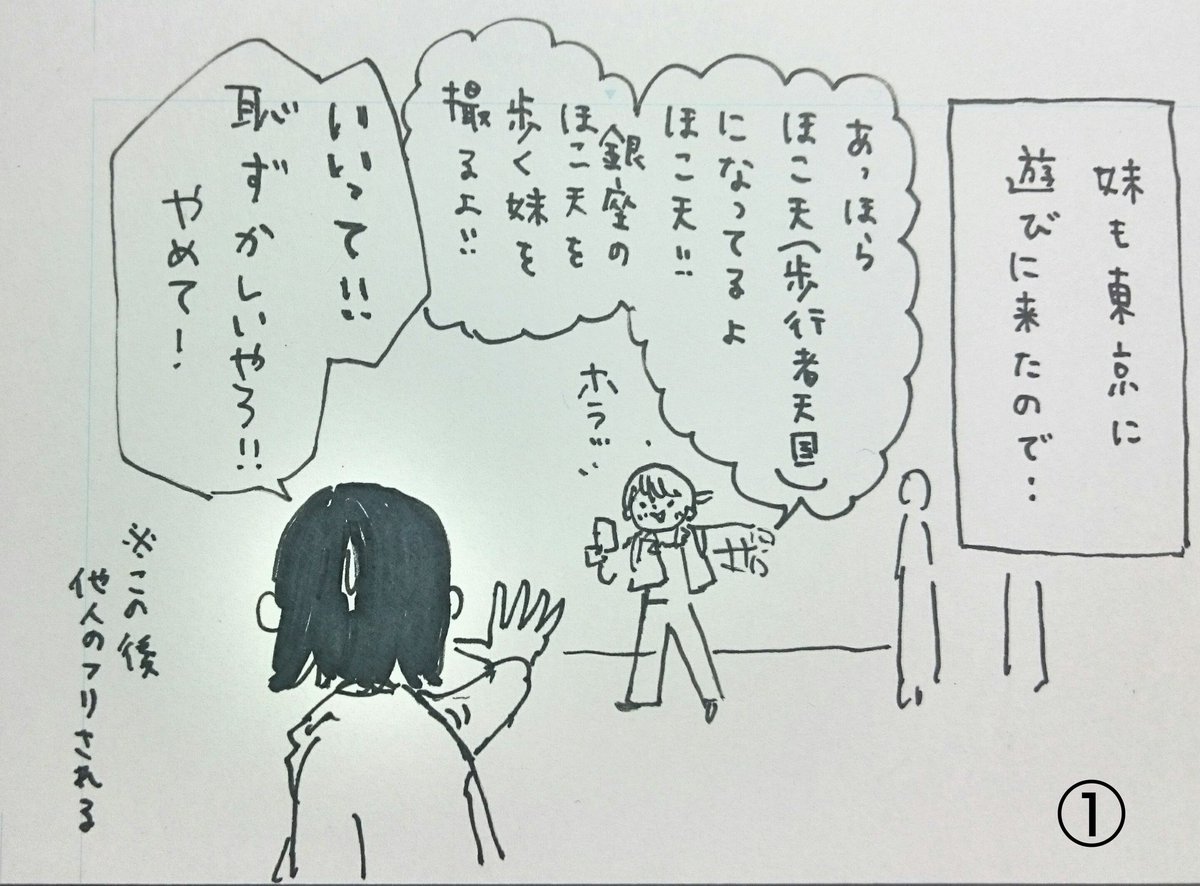 妹も東京に
遊びに来たので‥
あっほら
ほこ天(歩行者天国)
になってるよ
ほこ天!!
銀座の
ほこ天を
歩く妹を
撮るよ!!
ホラ…
いいって!!
恥ずかしいやろ!!
やめて!
※この後
他人のフリされる
①